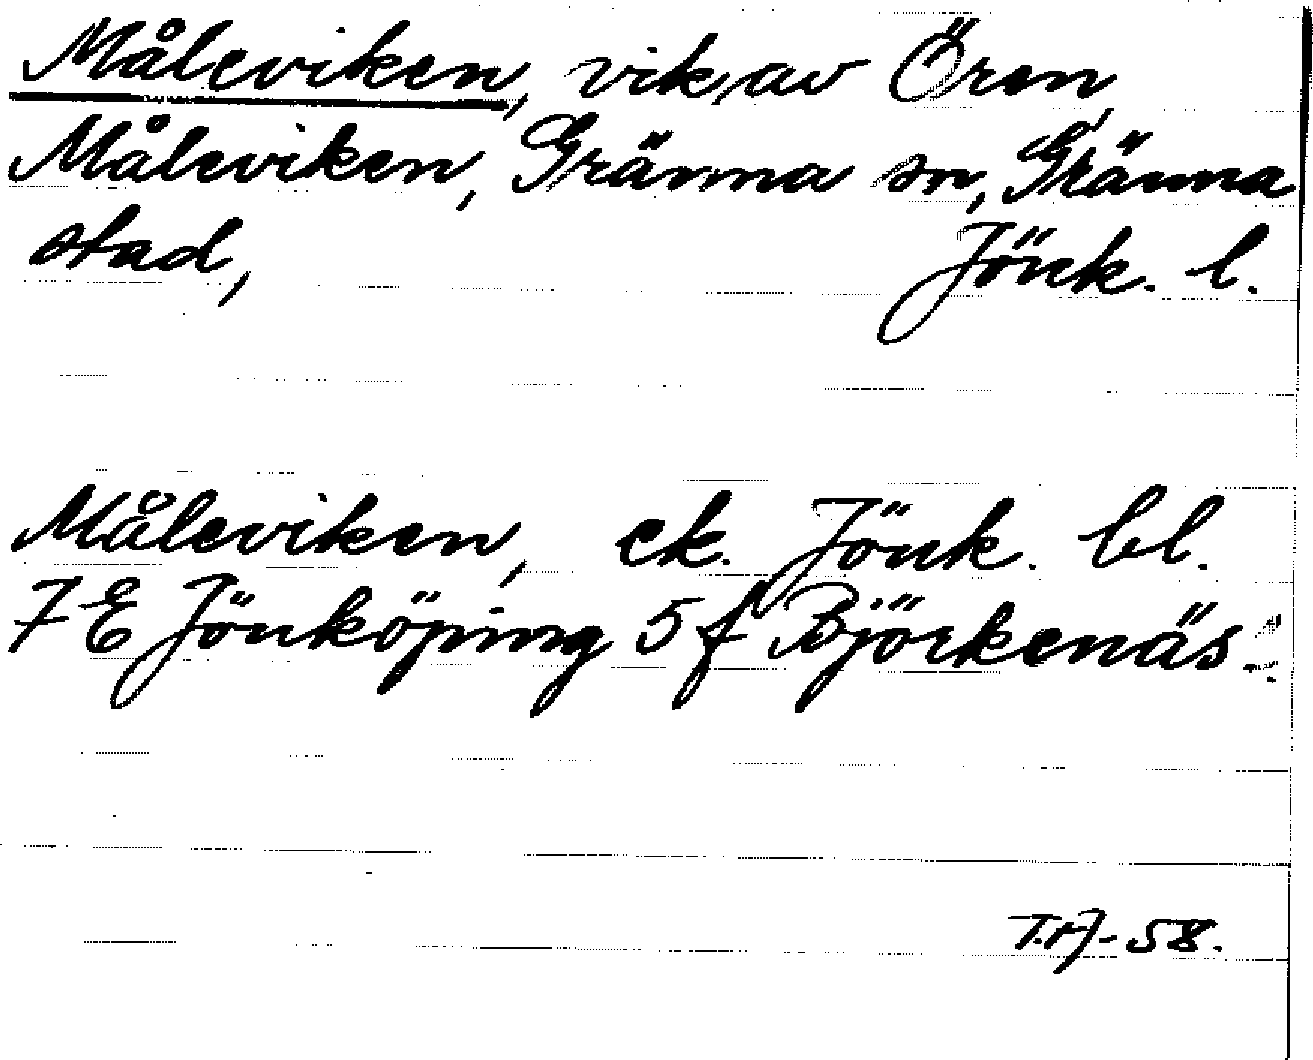 Måleviken, vik av Ören,
Måleviken, Gränna sn, Gränna
stad, Jönk. l.
Måleviken, ek. Jönk. bl.
7 E Jönköping 5 f Björkenäs
58.